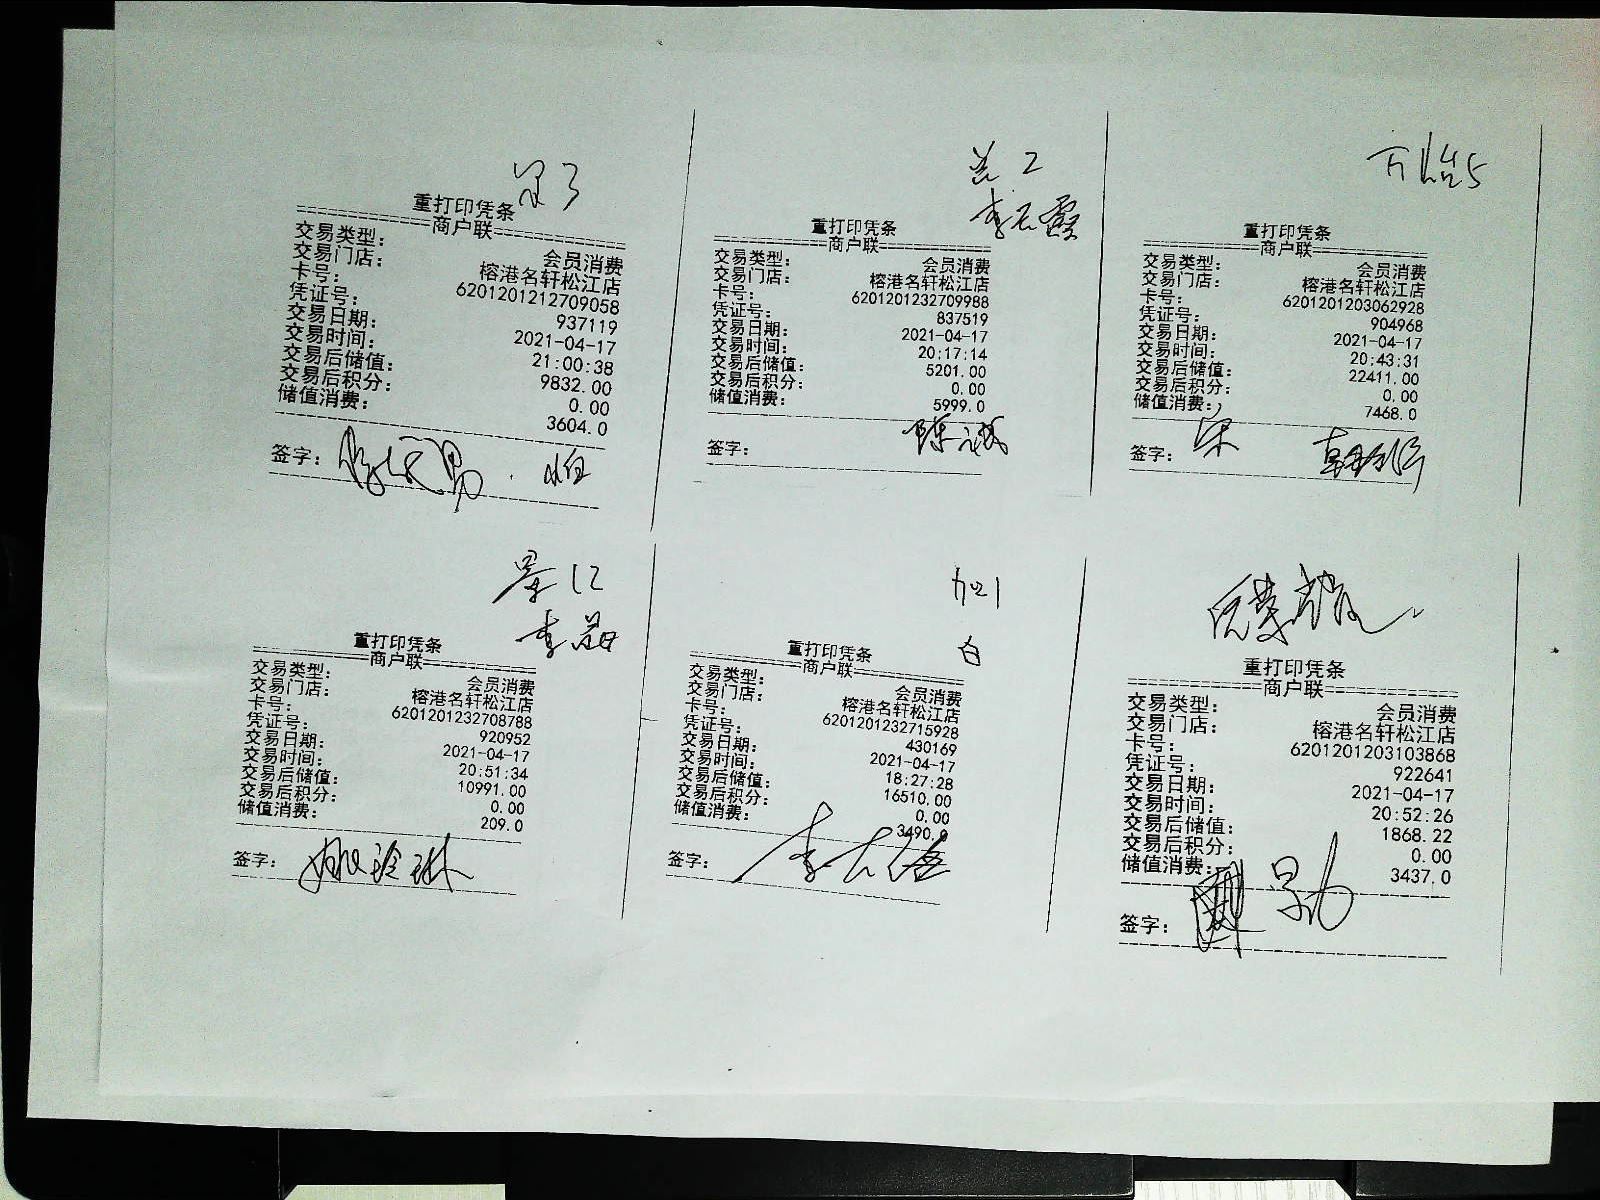 重打印凭条
商户联
交易类型： 会员消费
交易门店： 榕港名轩松江店
卡号： 6201201212709058
凭证号： 937119
交易日期： 2021-04-17
交易时间： 21:00:38
交易后储值： 9832.00
交易后积分： 0.00
储值消费： 3604.0
签字：
兰2
李玉霞
重打印凭条
商户联
交易类型： 会员消费
交易门店： 榕港名轩松江店
卡号： 6201201232709988
凭证号： 837519
交易日期： 2021-04-17
交易时间： 20:17:14
交易后储值： 5201.00
交易后积分： 0.00
储值消费： 5999.0
签字： 陈诚
5
重打印凭条
商户联
交易类型： 会员消费
交易门店： 榕港名轩松江店
卡号： 6201201203062928
凭证号： 904968
交易日期： 2021-04-17
交易时间： 20:43:31
交易后储值： 22411.00
交易后积分： 0.00
储值消费： 7468.0
签字：
景12
重打印凭条
商户联
交易类型： 会员消费
交易门店： 榕港名轩松江店
卡号： 6201201232708788
凭证号： 920952
交易日期： 2021-04-17
交易时间： 20:51:34
交易后储值： 10991.00
交易后积分： 0.00
储值消费： 209.0
签字： 姚玲琳
重打印凭条
商户联
交易类型： 会员消费
交易门店： 榕港名轩松江店
卡号： 6201201232715928
凭证号： 430169
交易日期： 2021-04-17
交易时间： 18:27:28
交易后储值： 16510.00
交易后积分： 0.00
储值消费： 3490.0
签字：
重打印凭条
商户联
交易类型： 会员消费
交易门店： 榕港名轩松江店
卡号： 6201201203103868
凭证号： 922641
交易日期： 2021-04-17
交易时间： 20:52:26
交易后储值： 1868.22
交易后积分： 0.00
储值消费： 3437.0
签字：